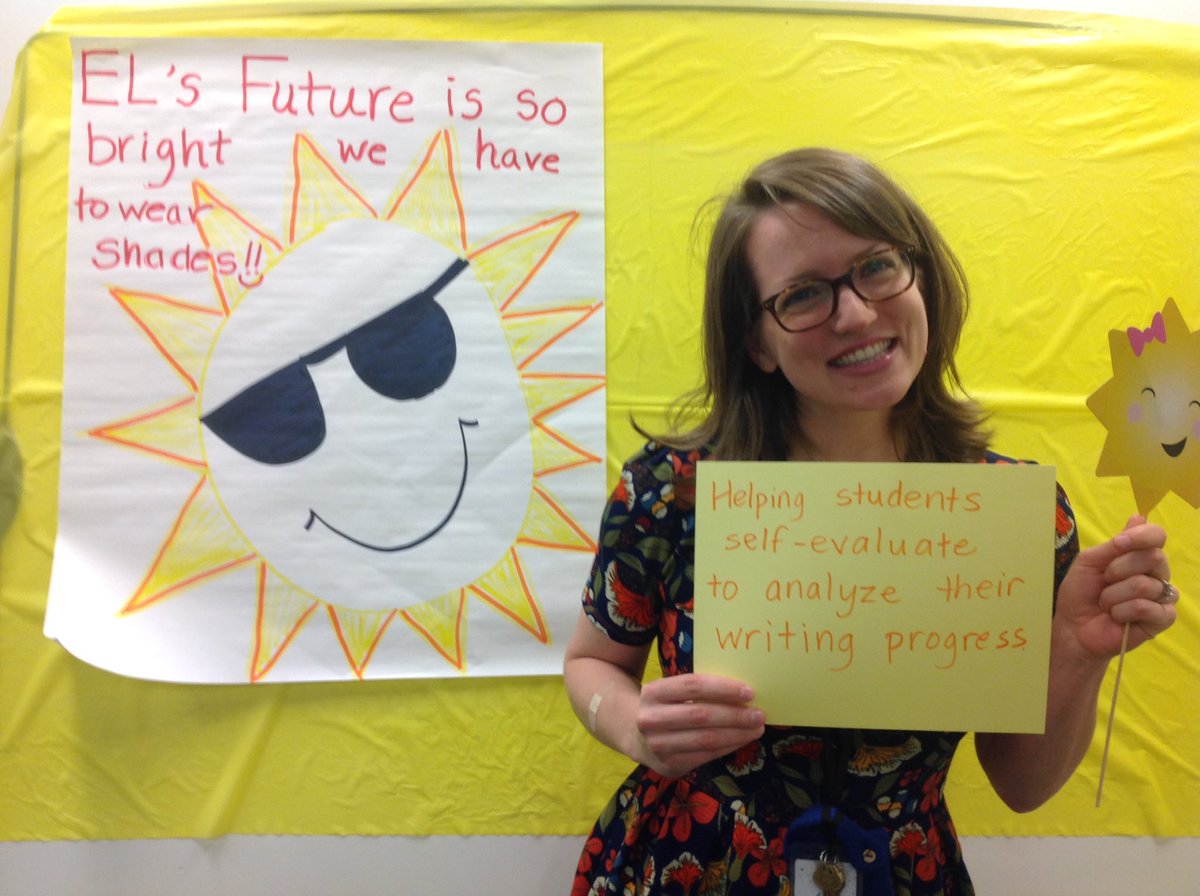 EL's Future is so
bright we have
to wear
shades!!
Helping students
self-evaluate
to analyze their
writing progress